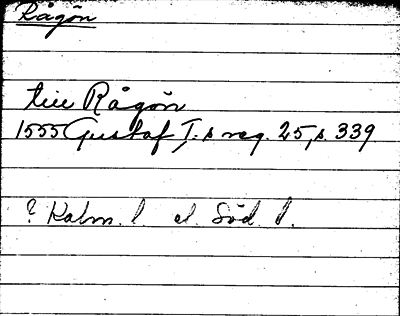 Rågön
till Rågön
1555 Gustaf I. s reg. 25, s. 339
? Kalm. l el. Söd. l.